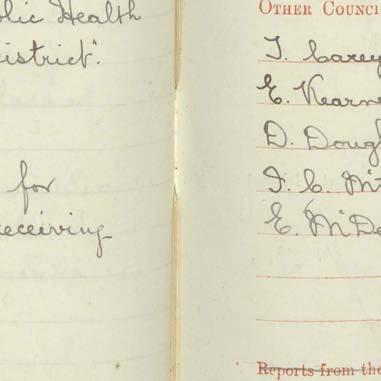 blic Health
istrict".
for
receiving
OTHER COUNCI
T. Carey
E. Kearne
D. Dough
F. C. McF
E. McDe
Reports from the